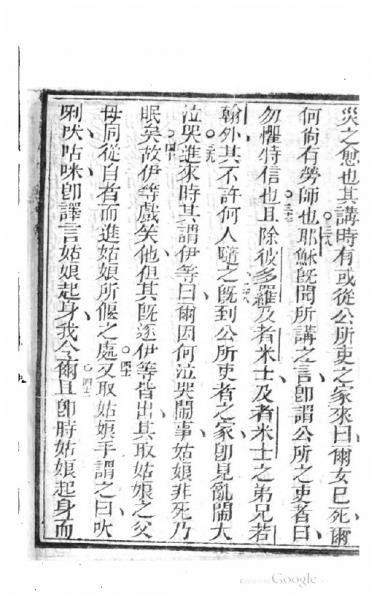 災之愆也其講時有或從公所吏之家來曰爾女已死爾
何尚有勞師也耶穌旣聞所講之言卽謂公所之吏者曰
勿懼特信也且除彼多羅及者米士及者米士之弟兄若
翰外其不許何人隨之旣到公所吏者之家卽見亂鬧大
泣哭進來時其謂伊等曰爾因何泣哭鬧事姑娘非死乃
眠矣故伊等戲笑他但其旣逐伊等皆出其取姑娘之父
母同從自者而進姑娘所偃之處又取姑娘手謂之曰
唎咉咕咪卽譯言姑娘起身我令爾且卽時姑娘起身而
Google